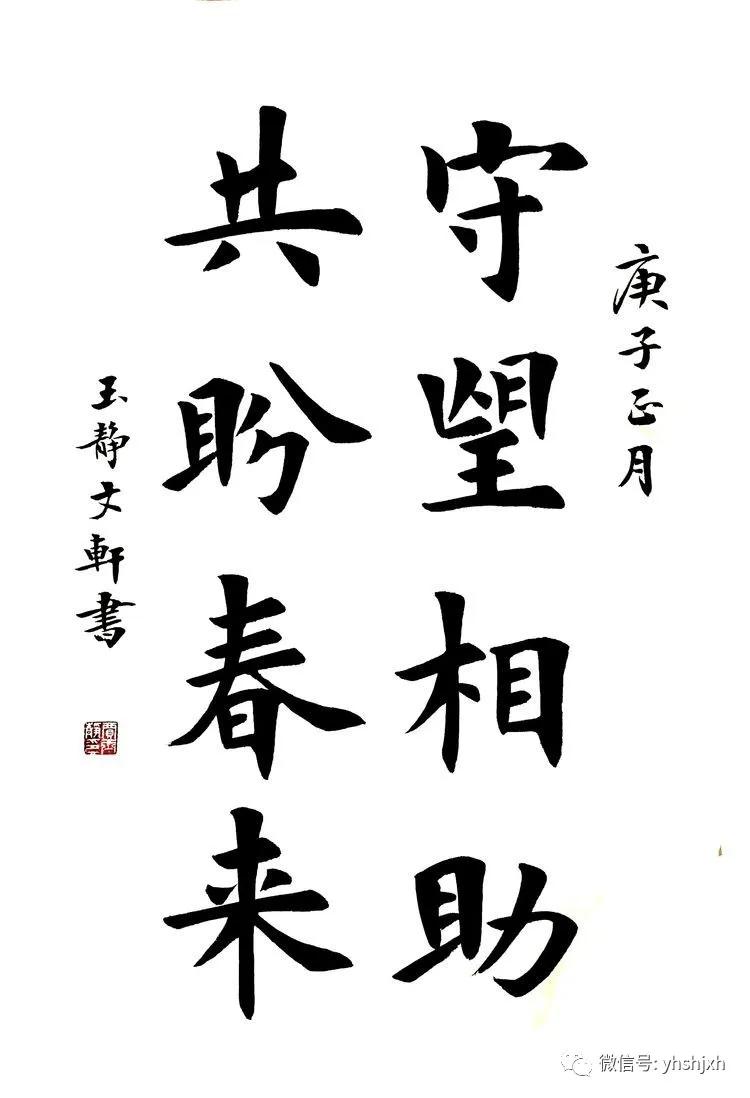 庚子正月
守望相助
共盼春来
玉静文軒書
微信号: yhshjxh